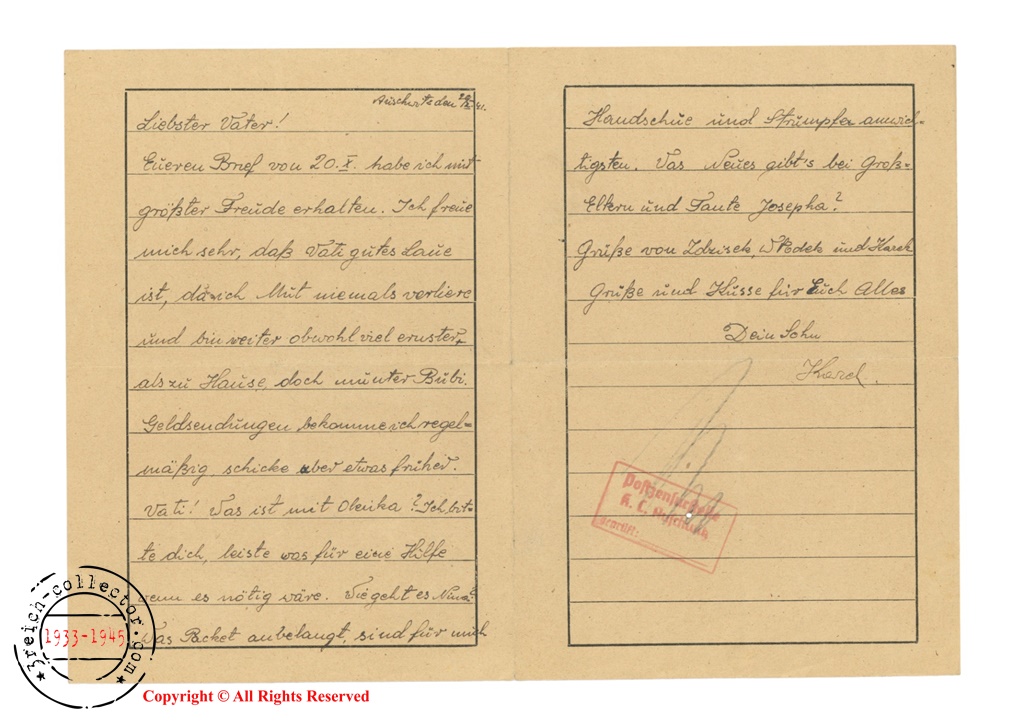 Auschwitz den 41.
Liebster Vater!
Eueren Brief von 20.X. habe ich mit
größter Freude erhalten. Ich freue
mich sehr, daß Vati gutes Laue
ist, da ich Mut niemals verliere
und bin weiter obwohl viel ernster,
als zu Hause, doch munter Bubi.
Geldsendungen bekomme ich regel=
mäßig, schicke aber etwas früher.
Vati! Was ist mit Olenka? Ich bit-
te dich, leiste was für eine Hilfe
wenn es nötig wäre. Wie geht es Nina?
Das Packet anbelangt, sind für mich
Handschue und Strümpfe amwich=
tigsten. Was Neues gibt's bei Groß=
Eltern und Tante Josepha?
Grüße von Zdzisek, Władek und
Grüße und Küsse für Euch Alles
Dein Sohn
Karol.
Postzensurstelle
K. L. Auschwitz
geprüft:
3reich-collector.com
1933-1945
Copyright © All Rights Reserved